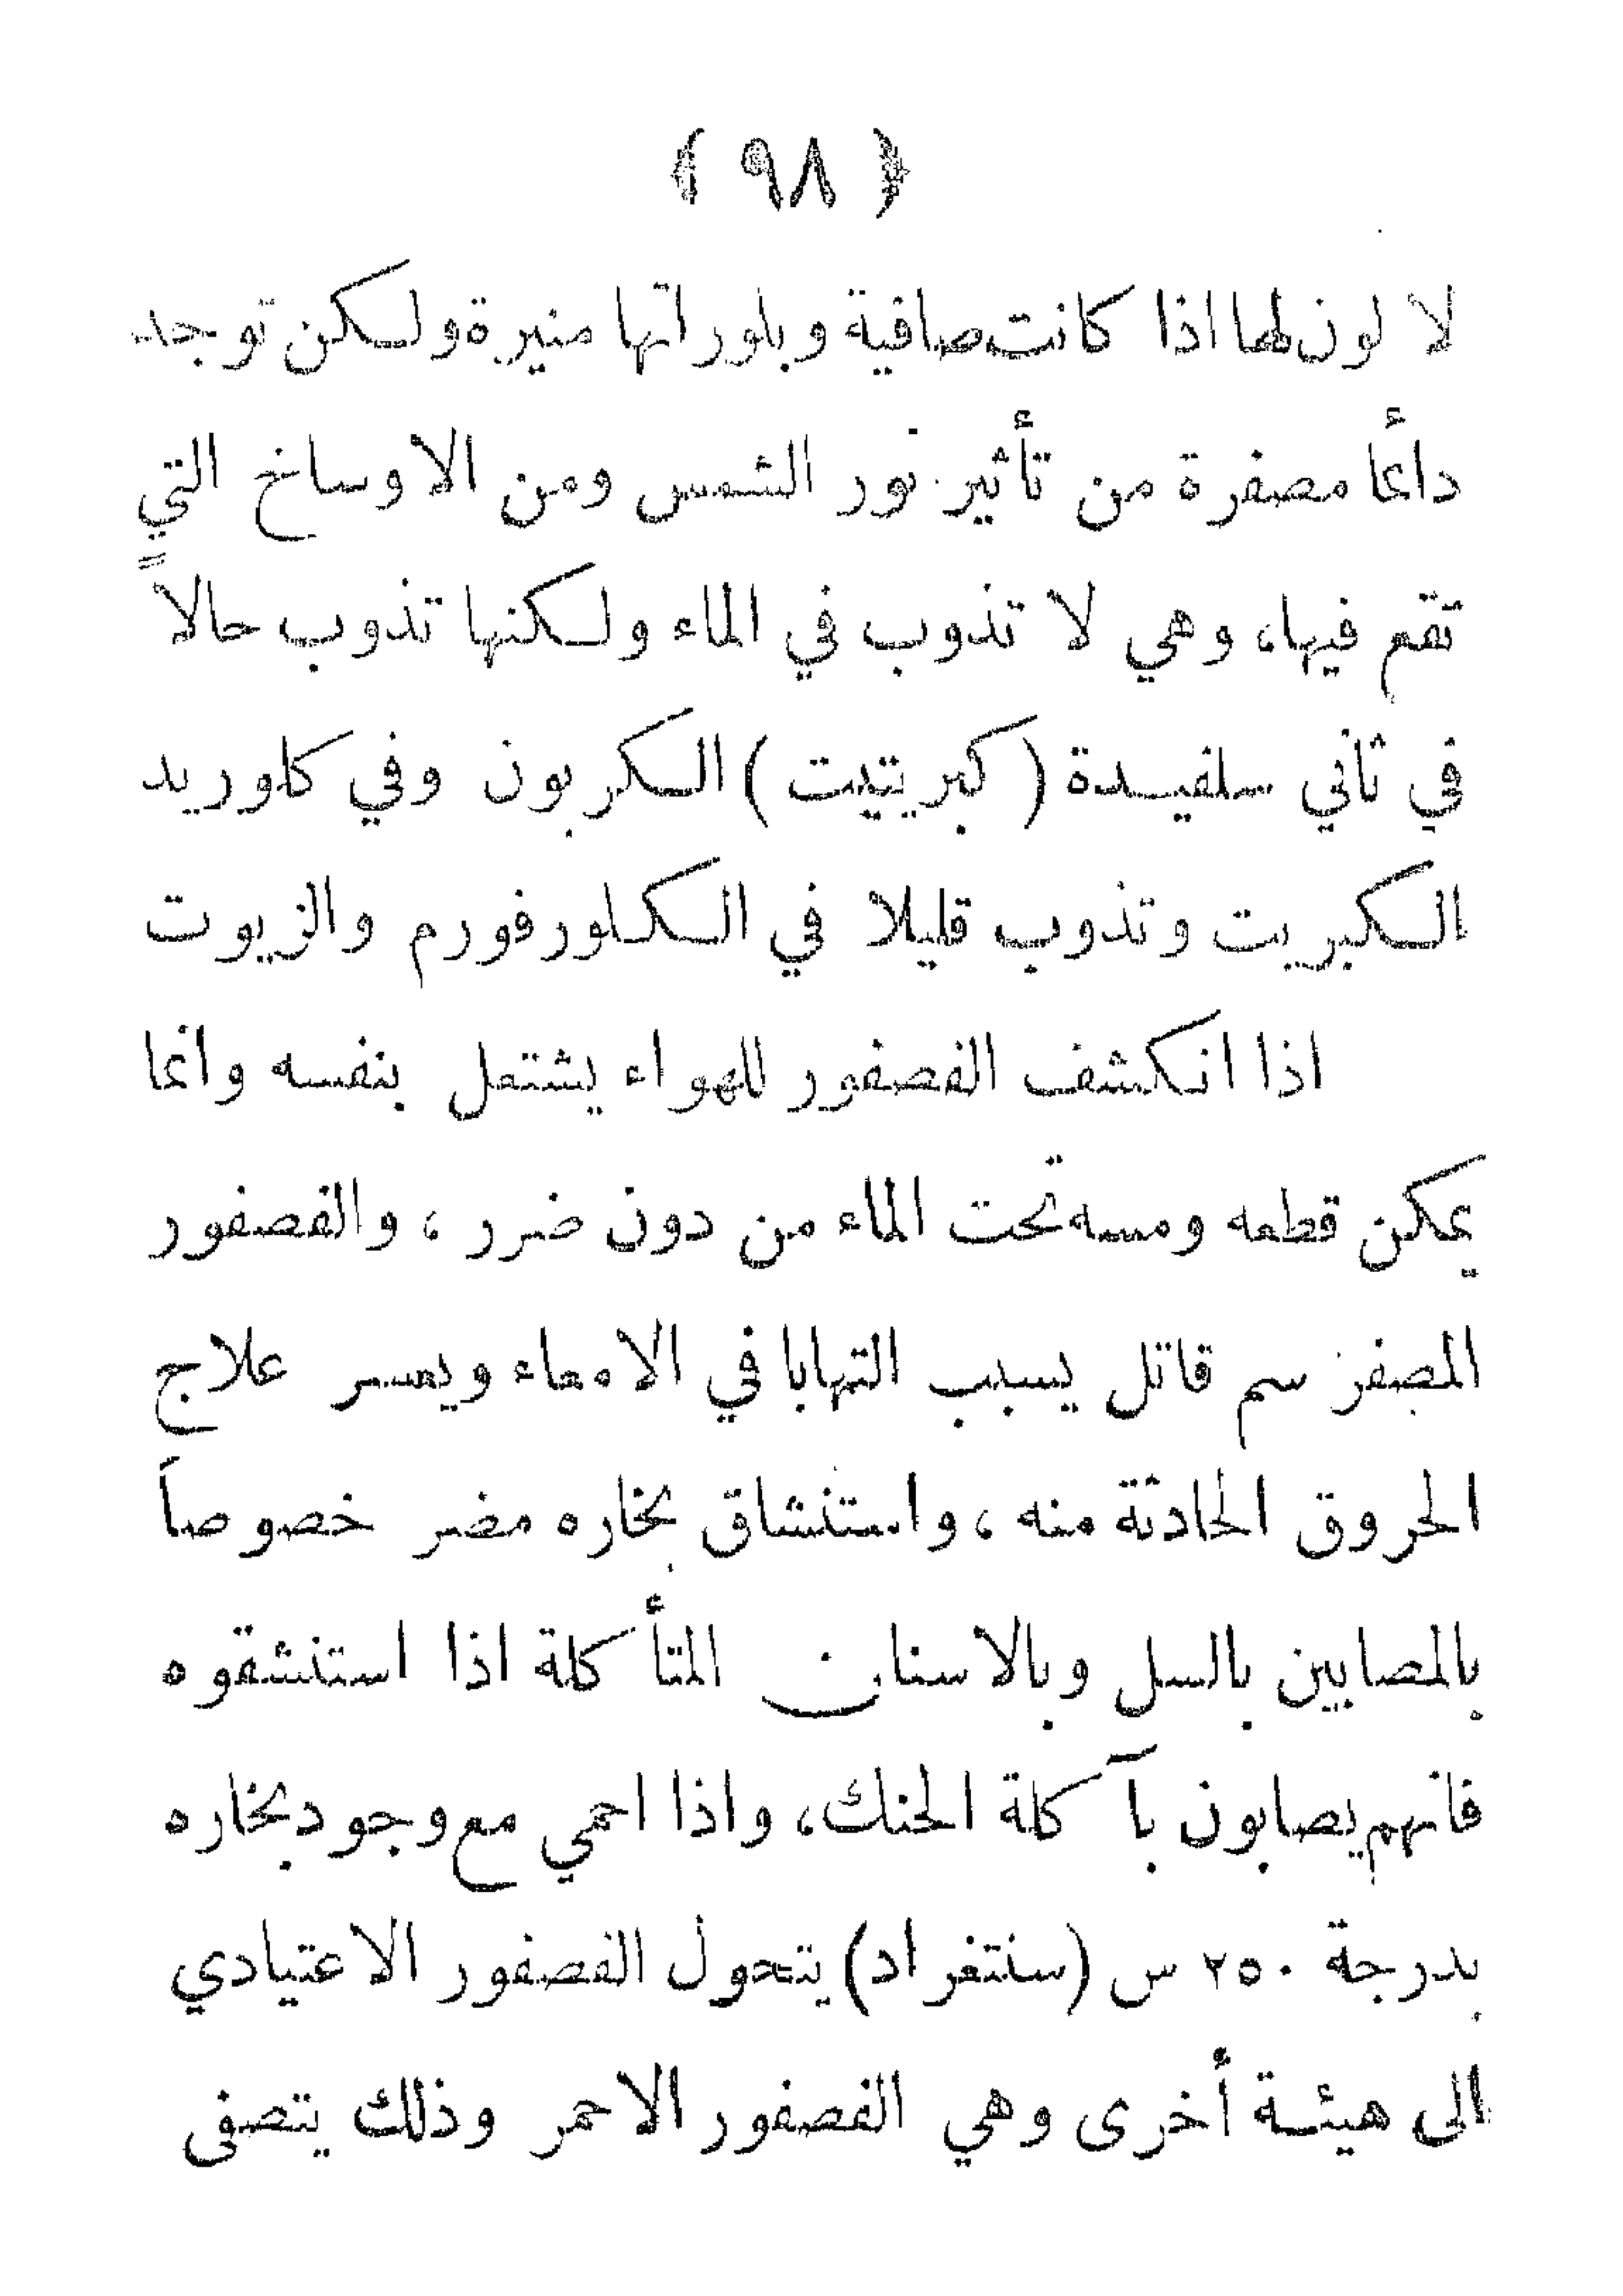 ﴿ ٩٨ ﴾
لا لون لها اذا كانت صافية وبلوراتها منيرة ولكن توجد
دائما مصفرة من تأثير نور الشمس ومن الاوساخ التي
تقع فيها، وهي لا تذوب في الماء ولكنها تذوب حالاً
في ثاني سلفيدة (كبريتيت) الكربون وفي كلوريد
الكبريت وتذوب قليلا في الكلورفورم والزيوت
اذا انكشف الفصفور للهواء يشتعل بنفسه وانما
يمكن قطعه ومسه تحت الماء من دون ضرر، والفصفور
المصفر سم قاتل يسبب التهابا في الامعاء ويعسر علاج
الحروق الحادثة منه، واستنشاق بخاره مضر خصوصاً
بالمصابين بالسل وبالاسنان المتأكلة اذا استنشقوه
فانهم يصابون بآكلة الحنك، واذا احمي مع وجود بخاره
بدرجة ٢٥٠ س (سنتغراد) يتحول الفصفور الاعتيادي
الى هيئة أخرى وهي الفصفور الاحمر وذلك يتصفى